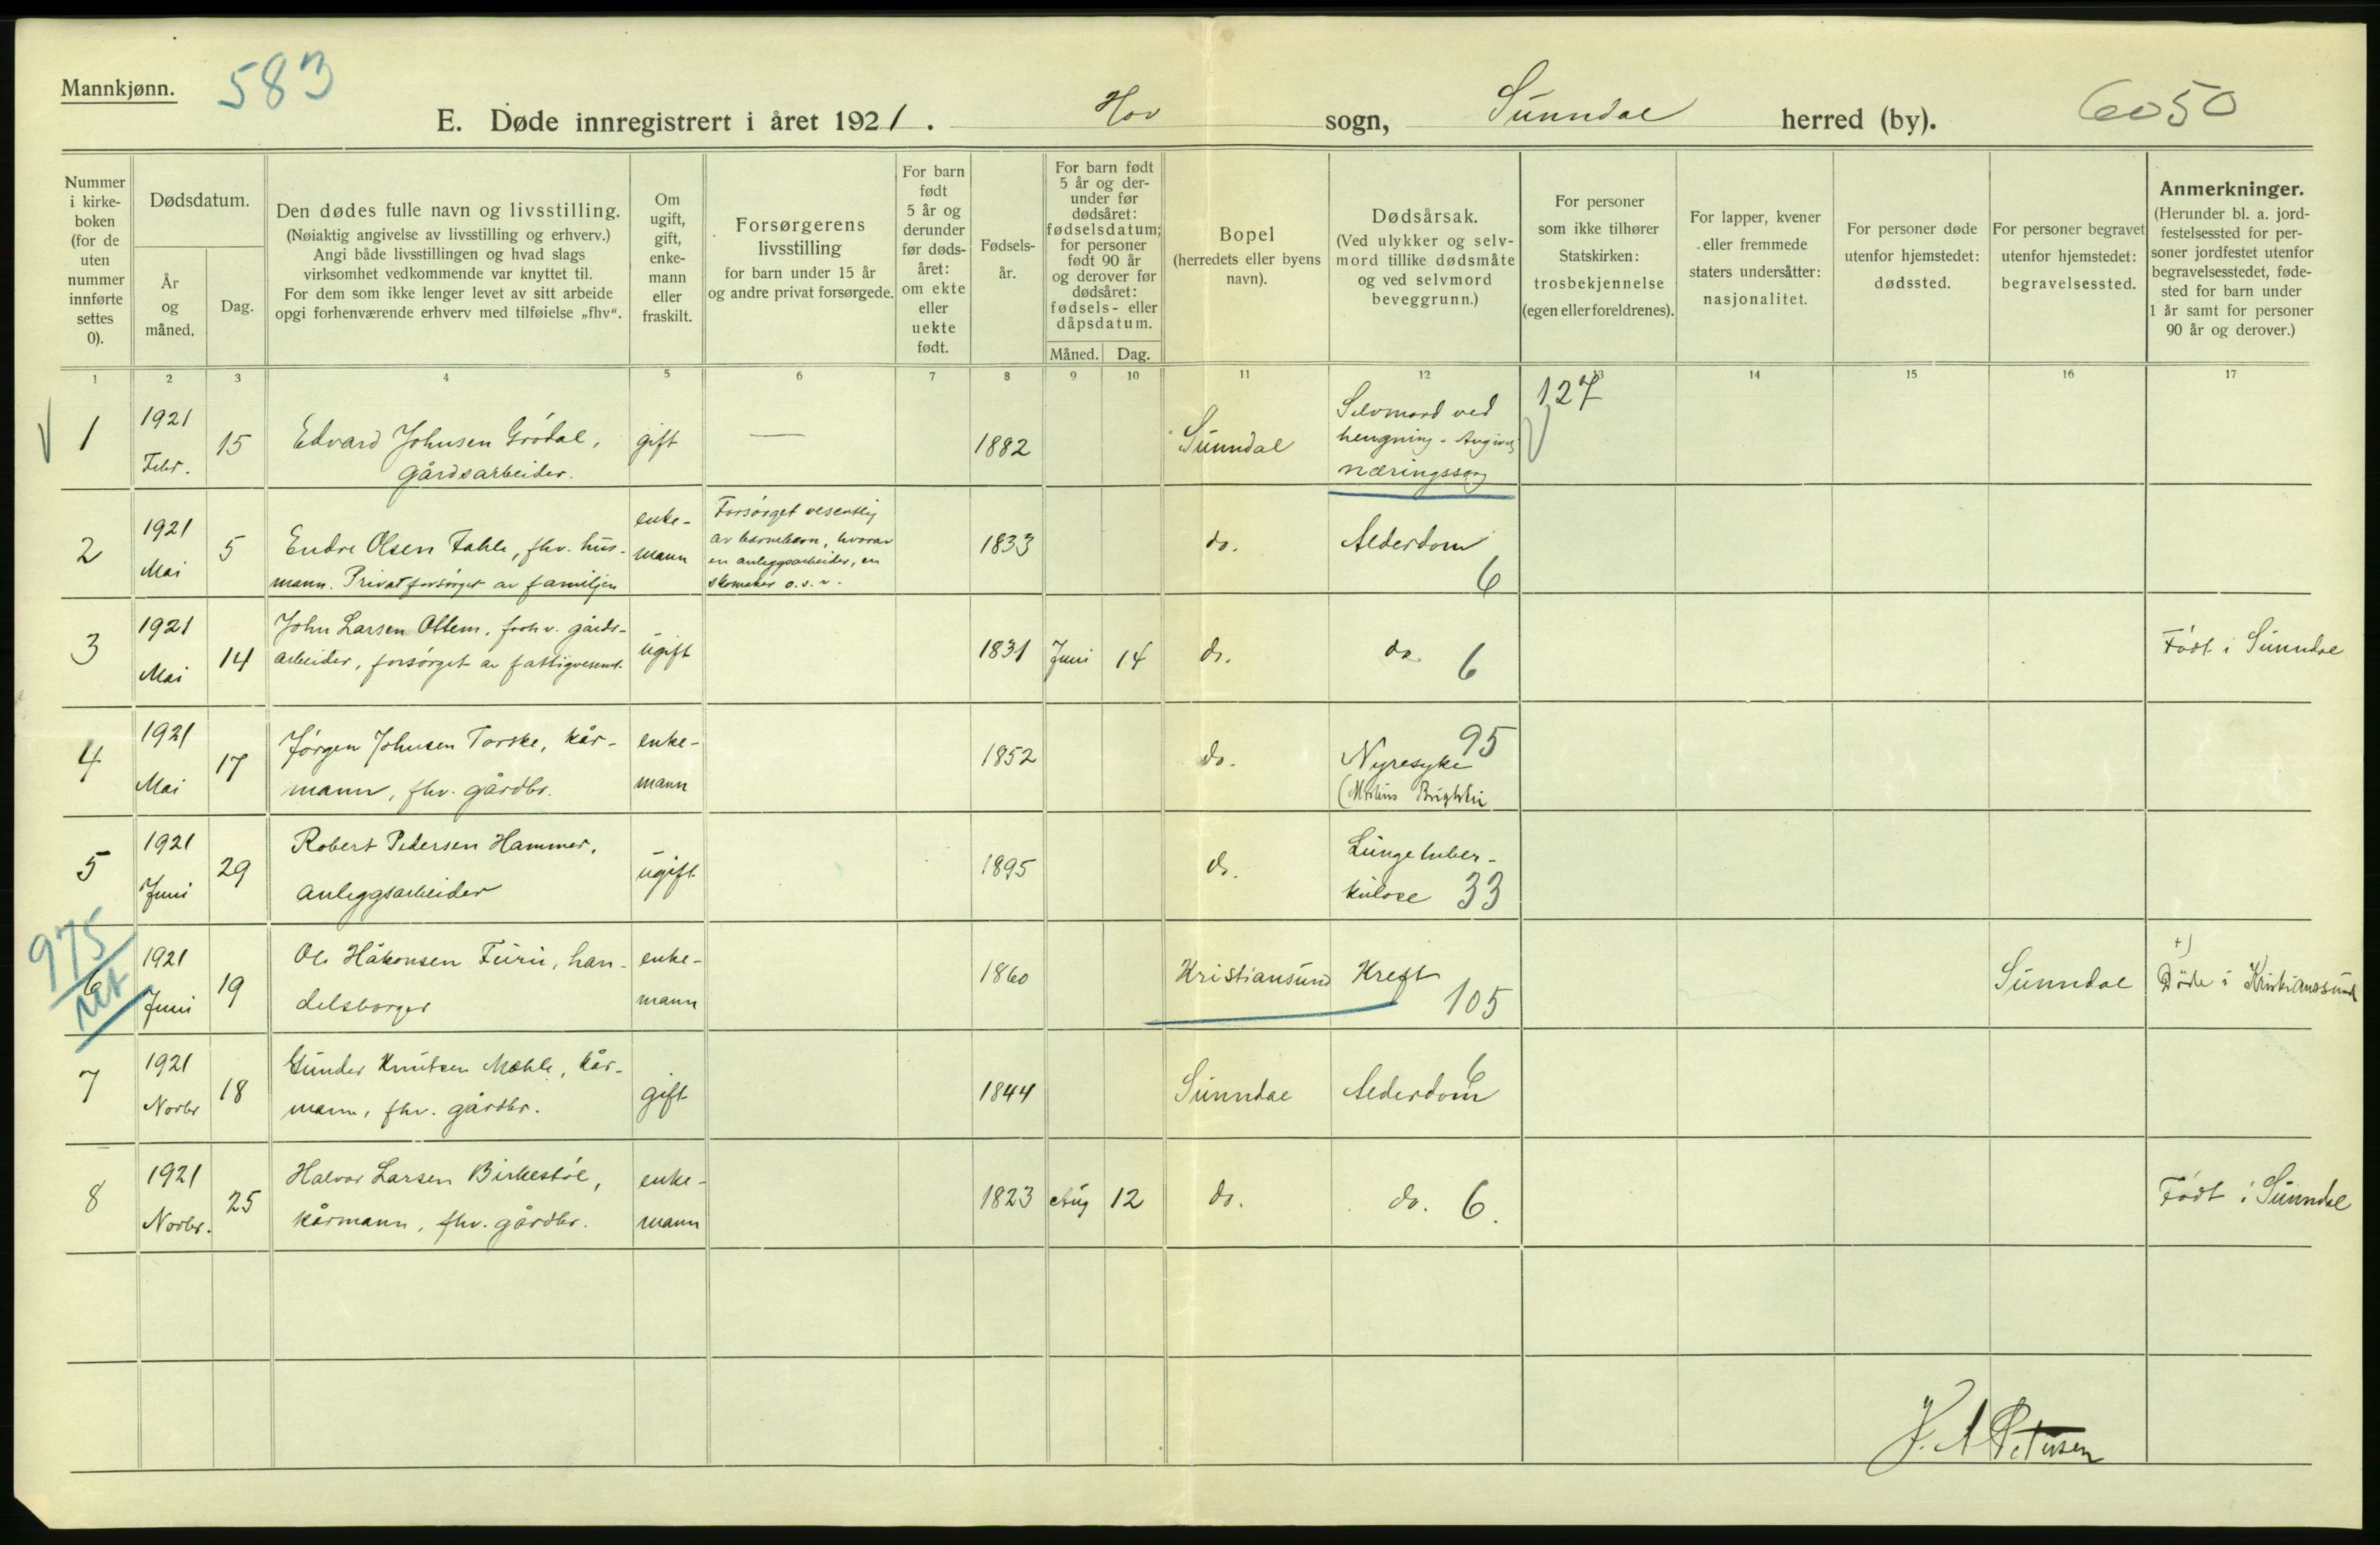 Mannkjønn.
583
E. Døde innregistrert i året 1921. Hov sogn, Sunndal herred (by).
6050
Nummer
i kirke-
boken
(for de
uten
nummer
innførte
settes
0).
Dødsdatum.
År
og
måned.
Dag.
Den dødes fulle navn og livsstilling.
(Nøiaktig angivelse av livsstilling og erhverv.)
Angi både livsstillingen og hvad slags
virksomhet vedkommende var knyttet til.
For dem som ikke lenger levet av sitt arbeide
opgi forhenværende erhverv med tilføielse „fhv“.
Om
ugift,
gift,
enke-
mann
eller
fraskilt.
Forsørgerens
livsstilling
for barn under 15 år
og andre privat forsørgede.
For barn
født
5 år og
derunder
før døds-
året:
om ekte
eller
uekte
født.
Fødsels-
år.
For barn født
5 år og der-
under før
dødsåret:
fødselsdatum;
for personer
født 90 år
og derover før
dødsåret:
fødsels- eller
dåpsdatum.
Måned. Dag.
Bopel
(herredets eller byens
navn).
Dødsårsak.
(Ved ulykker og selv-
mord tillike dødsmåte
og ved selvmord
beveggrunn.)
For personer
som ikke tilhører
Statskirken:
trosbekjennelse
(egen eller foreldrenes).
For lapper, kvener
eller fremmede
staters undersåtter:
nasjonalitet.
For personer døde
utenfor hjemstedet:
dødssted.
For personer begravet
utenfor hjemstedet:
begravelsessted.
Anmerkninger.
(Herunder bl. a. jord-
festelsessted for per-
soner jordfestet utenfor
begravelsesstedet, føde-
sted for barn under
1 år samt for personer
90 år og derover.)
1 2 3 4 5 6 7 8 9 10 11 12 13 14 15 16 17
1
1921
Febr.
15
Edvard Johnsen Grødal,
gårdsarbeider.
gift
—
1882
Sunndal
Selvmord ved
hengning - Angivel.
næringssorg
127
2
1921
Mai
5
Endre Olsen Fahle, fhv. hus-
mann. Privat forsørget av familjen
enke-
mann
Forsørget vesentlig
av barnebarn, hvorav
en anleggsarbeider, en
skomaker o.s.v.
1833
do.
Alderdom
6
3
1921
Mai
14
John Larsen Ottem, forhv. gårds-
arbeider, forsørget av fattigvesenet.
ugift
1831
Juni
14
do.
do
6
Født i Sunndal
4
1921
Mai
17
Jørgen Johnsen Torske, kår-
mann, fhv. gårdbr.
enke-
mann
1852
do.
95
Nyresyke
(Morbus Brightii
5
1921
Juni
29
Robert Pedersen Hammer,
anleggsarbeider
ugift
1895
do.
Lungetuber-
kulose 33
975
6
1921
Juni
19
Ole Håkonsen Furu, han-
delsborger
enke-
mann
1860
Kristiansund
Kreft
105
Sunndal
+)
Døde i Kristiansund
7
1921
Novbr
18
Gunder Knutsen Mæhle, kår-
mann, fhv. gårdbr.
gift
1844
Sunndal
6
Alderdom
8
1921
Novbr.
25
Halvor Larsen Birkestøl,
kårmann, fhv. gårdbr.
enke-
mann
1823
Aug
12
do.
do. 6.
Født i Sunndal